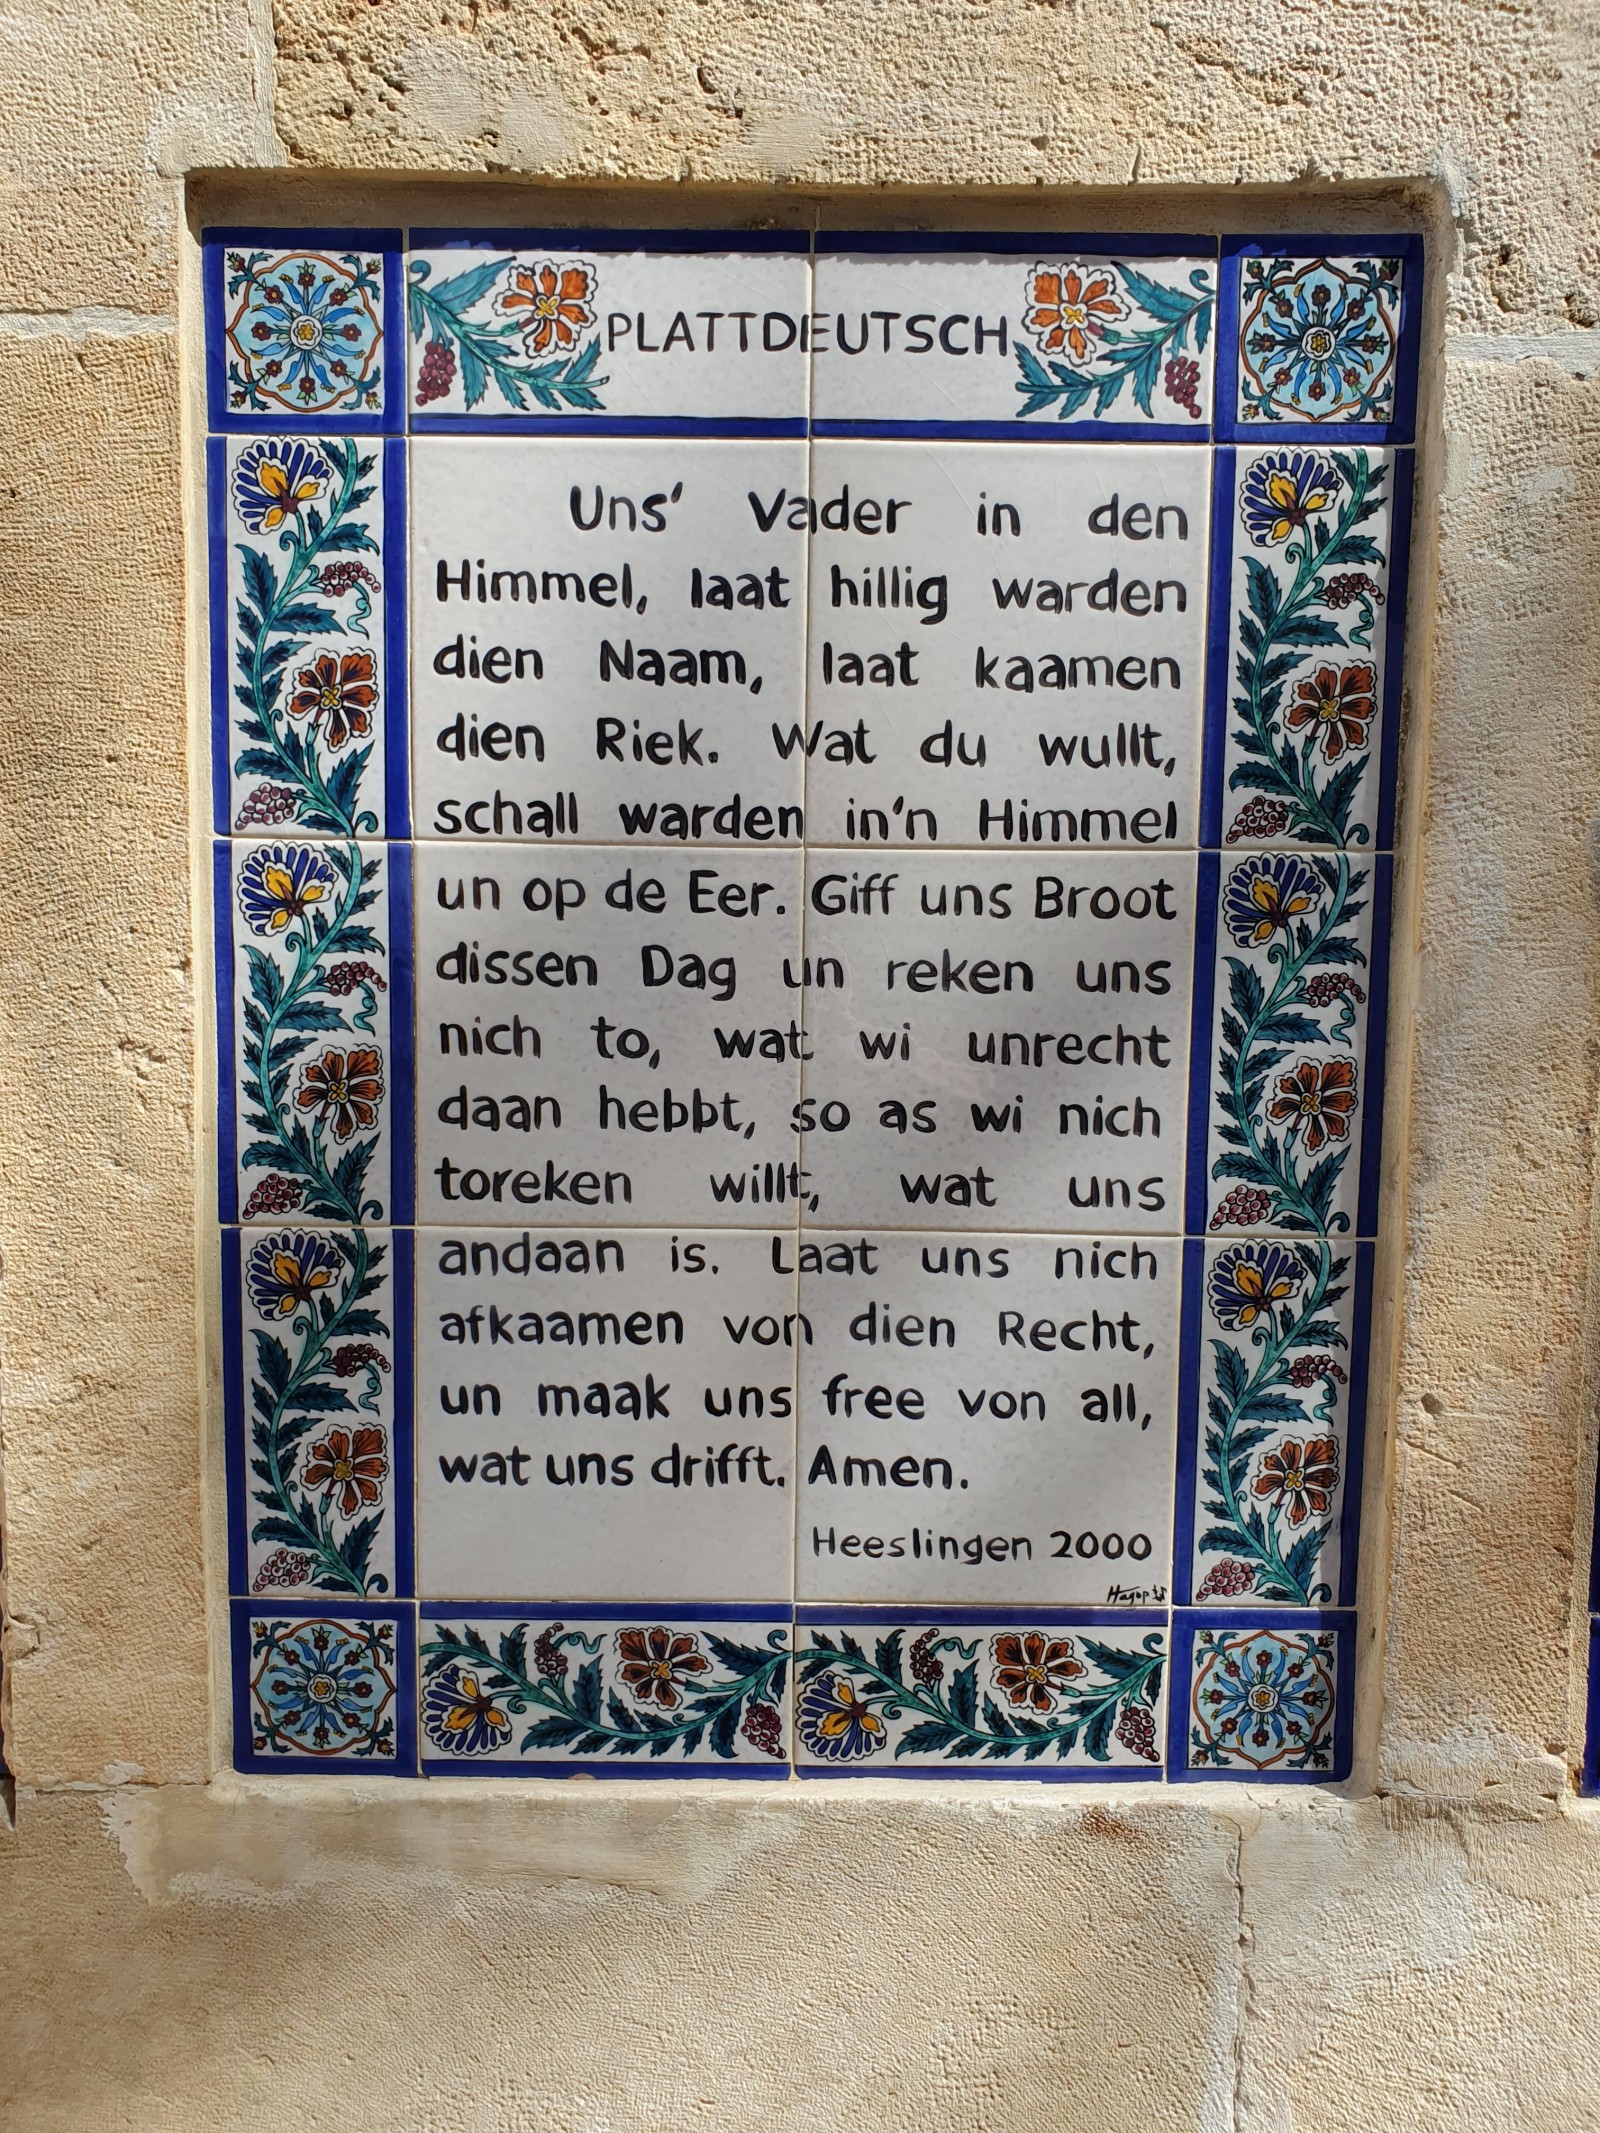 PLATTDEUTSCH
Uns' Vader in den
Himmel, laat hillig warden
dien Naam, laat kaamen
dien Riek. Wat du wullt,
schall warden in'n Himmel
un op de Eer. Giff uns Broot
dissen Dag un reken uns
nich to, wat wi unrecht
daan hebbt, so as wi nich
toreken willt, wat uns
andaan is. Laat uns nich
afkaamen von dien Recht,
un maak uns free von all,
wat uns drifft. Amen.
Heeslingen 2000
Hagop